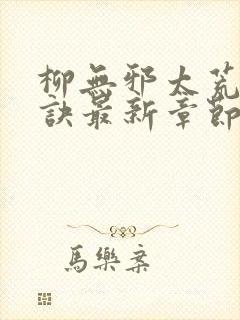 柳無邪太荒
訣最新章節
馬樂案